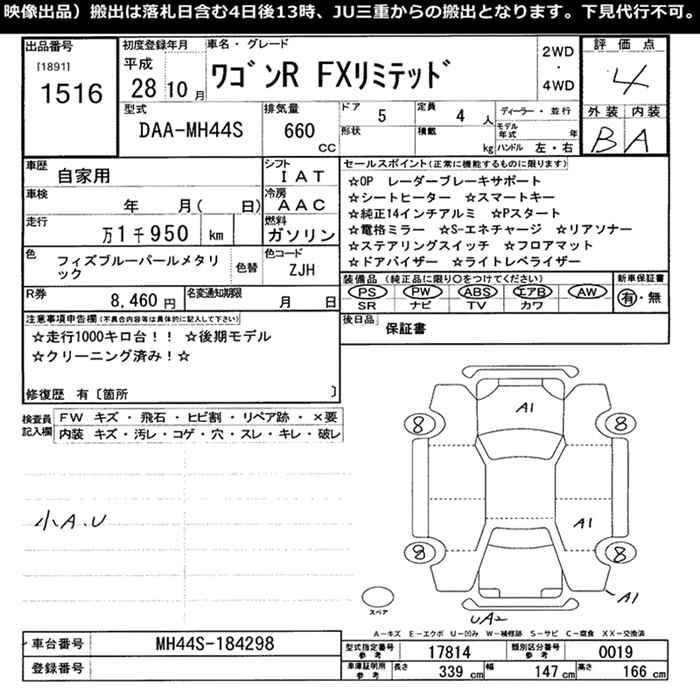 映像出品）搬出は落札日含む4日後13時、JU三重からの搬出となります。下見代行不可。
出品番号
[1891]
1516
初度登録年月
平成
28 10 月
車名・グレード
ワゴンR FXリミテッド
2WD
・
4WD
評価点
4
外装 内装
B A
型式
DAA-MH44S
排気量
660
cc
ドア 5
定員 4 人
形状
積載 kg
ディーラー・並行
モデル年式 年
ハンドル 左・右
車歴 自家用
シフト IAT
車検 年 月( 日)
冷房 AAC
走行 万1千950 km
燃料 ガソリン
色 フィズブルーパールメタリック
色替
色コード ZJH
R券 8,460 円
名変通知期限 月 日
セールスポイント(正常に機能するものに限ります)
☆OP レーダーブレーキサポート
☆シートヒーター ☆スマートキー
☆純正14インチアルミ ☆Pスタート
☆電格ミラー ☆S-エネチャージ ☆リアソナー
☆ステアリングスイッチ ☆フロアマット
☆ドアバイザー ☆ライトレベライザー
装備品 (純正品に限り○をつけてください)
PS PW ABS エアB AW
SR ナビ TV カワ
新車保証書
有・無
後日品 保証書
注意事項申告欄(不具合内容等は具体的に記入して下さい)
☆走行1000キロ台！！ ☆後期モデル
☆クリーニング済み！☆
修復歴 有〔箇所 〕
検査員記入欄
FW キズ・飛石・ヒビ割・リペア跡・×要
内装 キズ・汚レ・コゲ・穴・スレ・キレ・破レ
小A.U
A1
8 8
A1
8 8
A1
UA2
スペア
A－キズ E－エクボ U－凹み W－補修跡 S－サビ C－腐食 XX－交換済
車台番号 MH44S-184298
登録番号
型式指定番号 参考 17814
類別区分番号 参考 0019
車庫証明用 参考
長さ 339 cm
幅 147 cm
高さ 166 cm